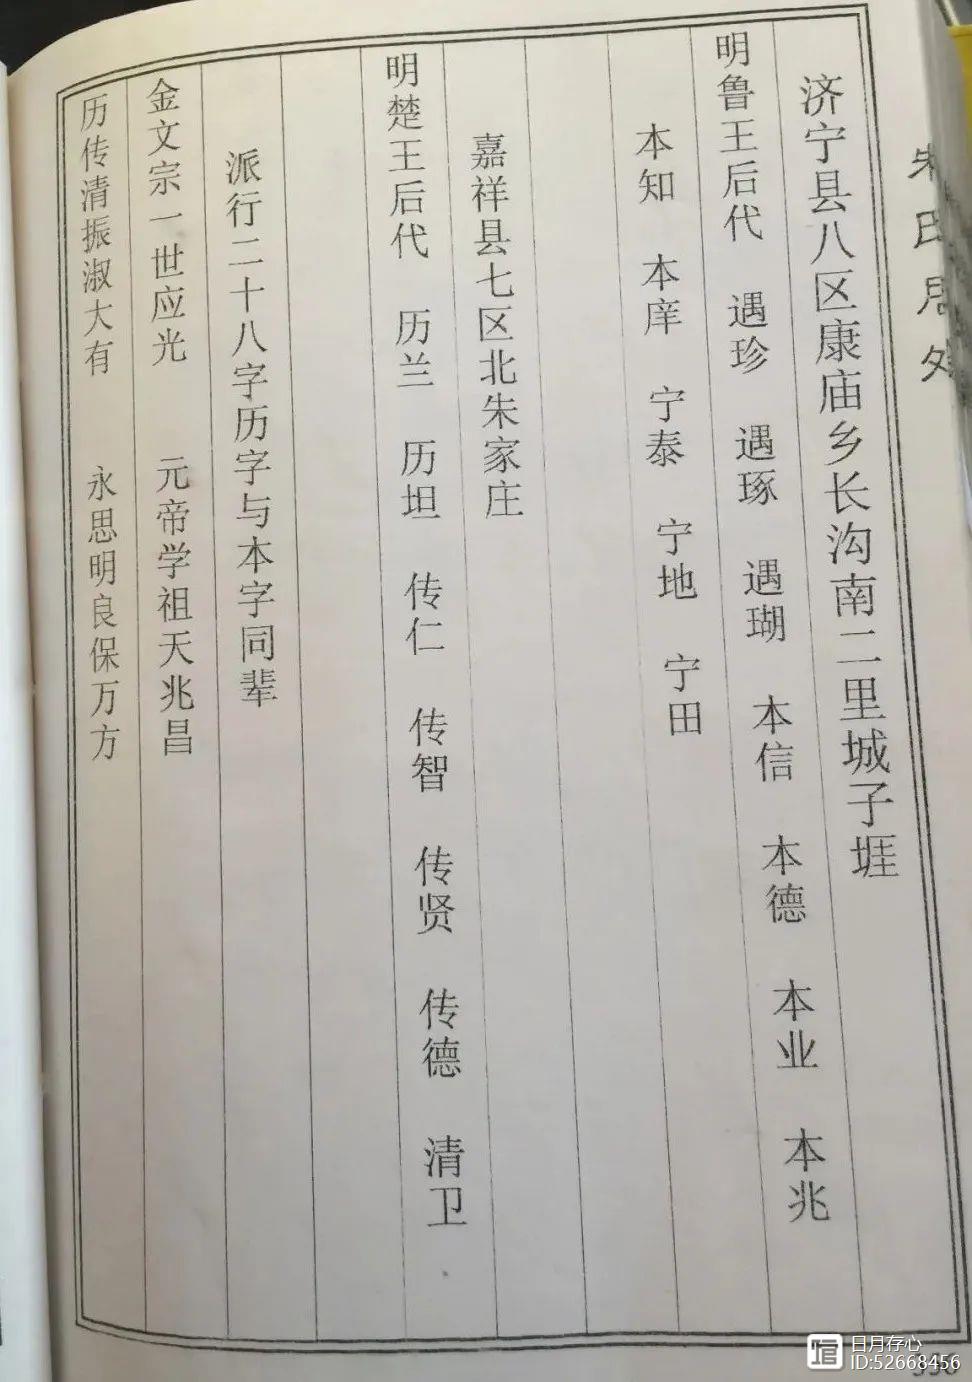 济宁县八区康庙乡长沟南二里城子堐
明鲁王后代 遇珍 遇琢 遇瑚 本信 本德 本业 本兆
本知 本庠 宁泰 宁地 宁田
嘉祥县七区北朱家庄
明楚王后代 历兰 历坦 传仁 传智 传贤 传德 清卫
派行二十八字历字与本字同辈
金文宗一世应光 元帝学祖天兆昌
历传清振淑大有 永思明良保万方
日月存心
ID:52668456